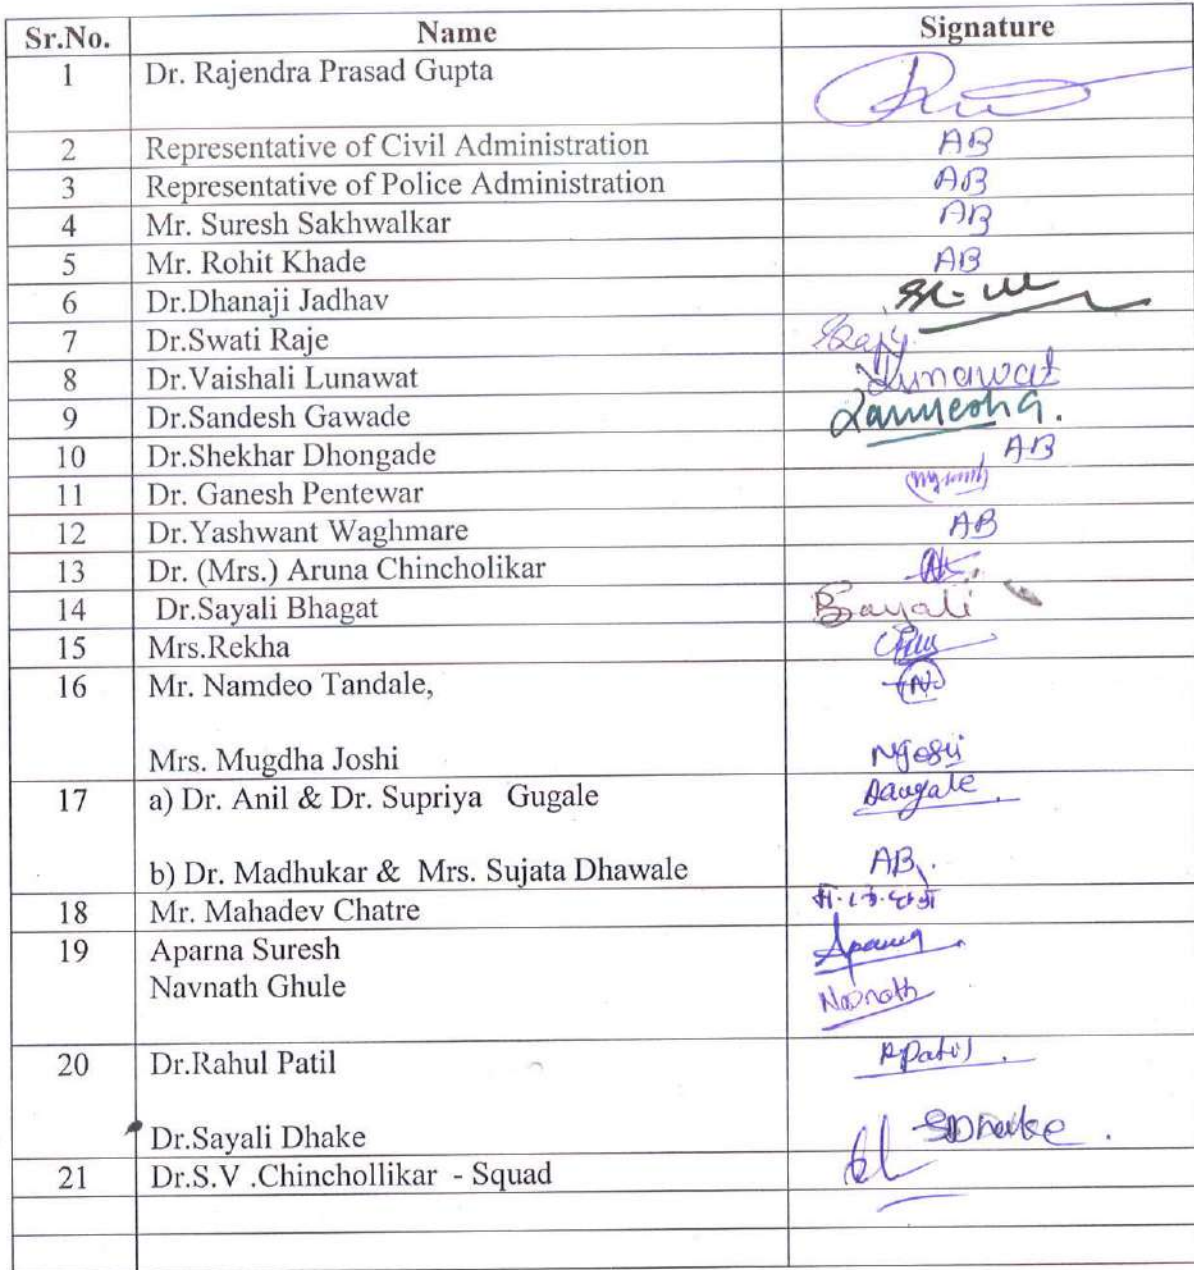 Sr.No. Name Signature
1 Dr. Rajendra Prasad Gupta
2 Representative of Civil Administration AB
3 Representative of Police Administration AB
4 Mr. Suresh Sakhwalkar AB
5 Mr. Rohit Khade AB
6 Dr.Dhanaji Jadhav
7 Dr.Swati Raje
8 Dr.Vaishali Lunawat Lunawat
9 Dr.Sandesh Gawade
10 Dr.Shekhar Dhongade AB
11 Dr. Ganesh Pentewar
12 Dr.Yashwant Waghmare AB
13 Dr. (Mrs.) Aruna Chincholikar
14 Dr.Sayali Bhagat Sayali
15 Mrs.Rekha
16 Mr. Namdeo Tandale,
Mrs. Mugdha Joshi MJoshi
17 a) Dr. Anil & Dr. Supriya Gugale
b) Dr. Madhukar & Mrs. Sujata Dhawale AB
18 Mr. Mahadev Chatre
19 Aparna Suresh Aparna
Navnath Ghule Navnath
20 Dr.Rahul Patil RPatil
Dr.Sayali Dhake SDhake
21 Dr.S.V .Chinchollikar - Squad